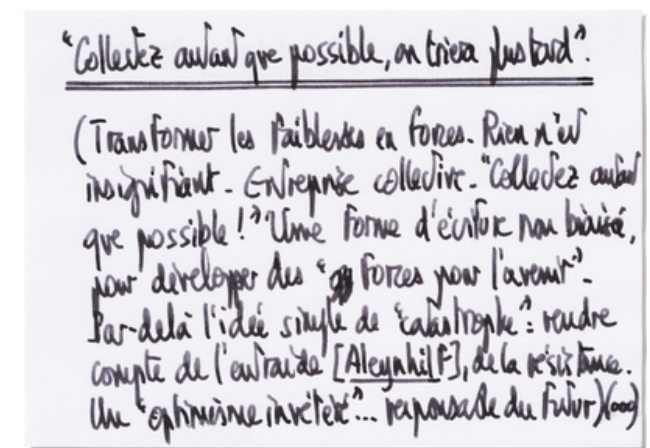 "Collectez autant que possible, on triera plus tard".
(Transformer les faiblesses en forces. Rien n'est
insignifiant. Entreprise collective. "Collectez autant
que possible !" Une forme d'écriture non biaisée,
pour développer des "forces pour l'avenir".
Par-delà l'idée simple de "catastrophe": rendre
compte de l'entraide [Aleynhilf], de la résistance.
Un "optimisme invétéré"... responsable du futur)(ooo)